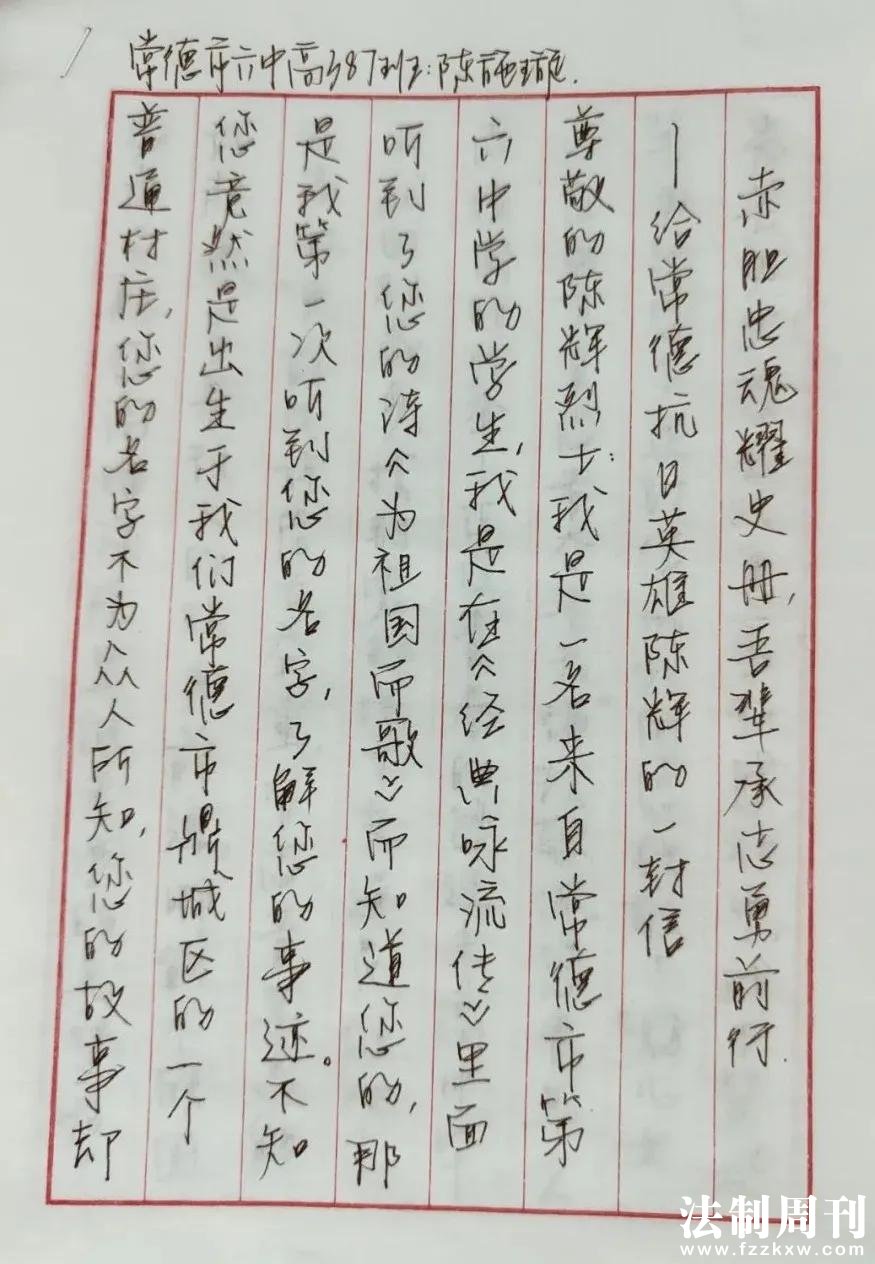 常德市六中高387班:陈施璇.
赤胆忠魂耀史册,吾辈承志勇前行.
—给常德抗日英雄陈辉的一封信
尊敬的陈辉烈士:我是一名来自常德市第
六中学的学生,我是在《经典咏流传》里面
听到了您的诗《为祖国而歌》而知道您的,那
是我第一次听到您的名字,了解您的事迹。不知
您竟然是出生于我们常德市鼎城区的一个
普通村庄,您的名字不为众人所知,您的故事却
法制周刊
www.fzzkxw.com